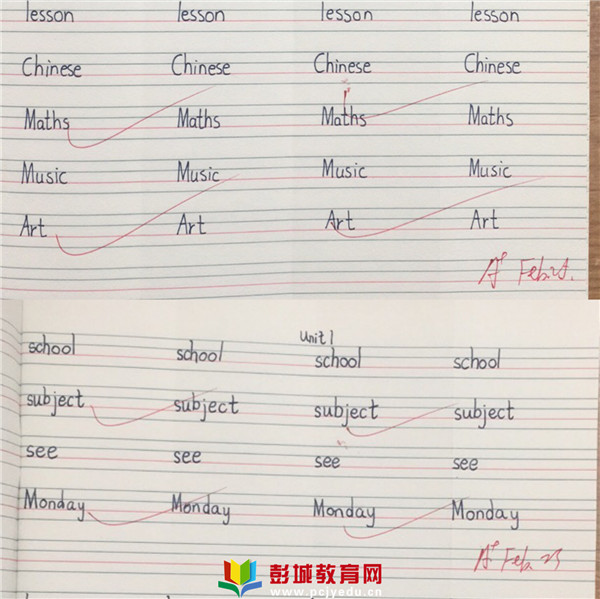 lesson lesson lesson lesson
Chinese Chinese Chinese Chinese
Maths Maths Maths Maths
Music Music Music Music
Art Art Art Art
A+ Feb.
Unit 1
school school school school
subject subject subject subject
see see see see
Monday Monday Monday Monday
A+ Feb. 23
彭城教育网
www.pcjyedu.cn